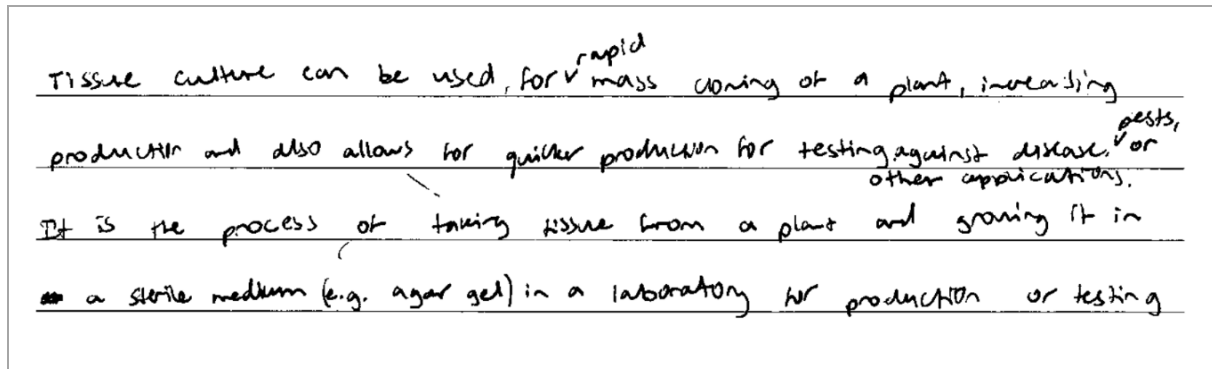 Tissue culture can be used, for rapid mass cloning of a plant, increasing
production and also allows for quicker production for testing against disease, pests, or
other applications.
It is the process of taking tissue from a plant and growing it in
a sterile medium (e.g. agar gel) in a laboratory for production or testing